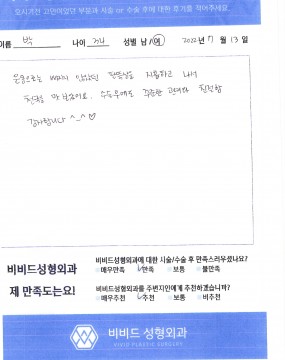 오시기전 고민이었던 부분과 시술 or 수술 후에 대한 후기를 적어주세요.
이름 박 나이 성별 남/여 2022년 7월 13일
운동으로는 빠지지 않았던 팔뚝살을 지흡하고 나서
만족해요. 수술후에도 꾸준한 관리와 친절함
감사합니다 ^_^ ♡
비비드성형외과에 대한 시술/수술 후 만족스러우셨나요?
매우만족 만족 보통 불만족
비비드성형외과
제 만족도는요!
비비드성형외과를 주변지인에게 추천하겠습니까?
매우추천 추천 보통 비추천
비비드 성형외과
VIVID PLASTIC SURGERY